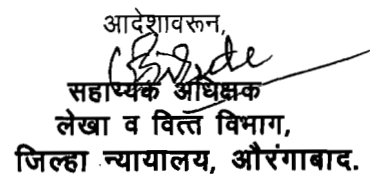 आदेशावरून,
सहाय्यक अधिक्षक
लेखा व वित्त विभाग,
जिल्हा न्यायालय, औरंगाबाद.